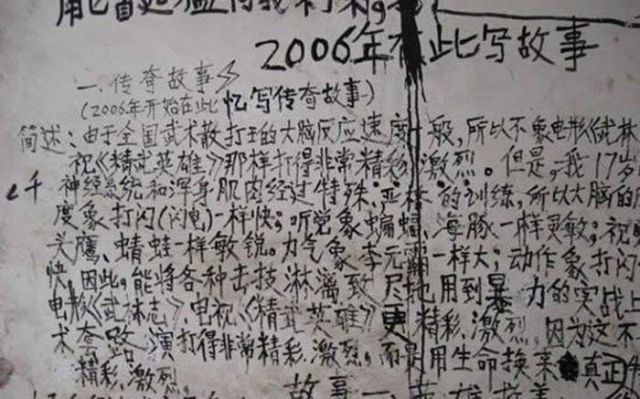 2006年在此写故事
一、传奇故事
(2006年开始在此忆写传奇故事)
简述:由于全国武术散打王的大脑反应速度一般,所以不象电影《武林
视《精武英雄》那样打得非常精彩、激烈。但是,我17岁
神经系统和浑身肌肉经过特殊、严格的训练,所以大脑的
度象打闪(闪电)一样快;听觉象蝙蝠、海豚一样灵敏;视
头鹰、蜻蜓一样敏锐。力气象李元霸一样大;动作象打闪
快,因此,能将各种击技淋漓致尽地用到暴力的实战
电影《武林志》电视《精武英雄》更精彩、激烈,因为这不
术套路演打得非常精彩、激烈,而是用生命换来真正
精彩、激烈。
故事一:英雄救美